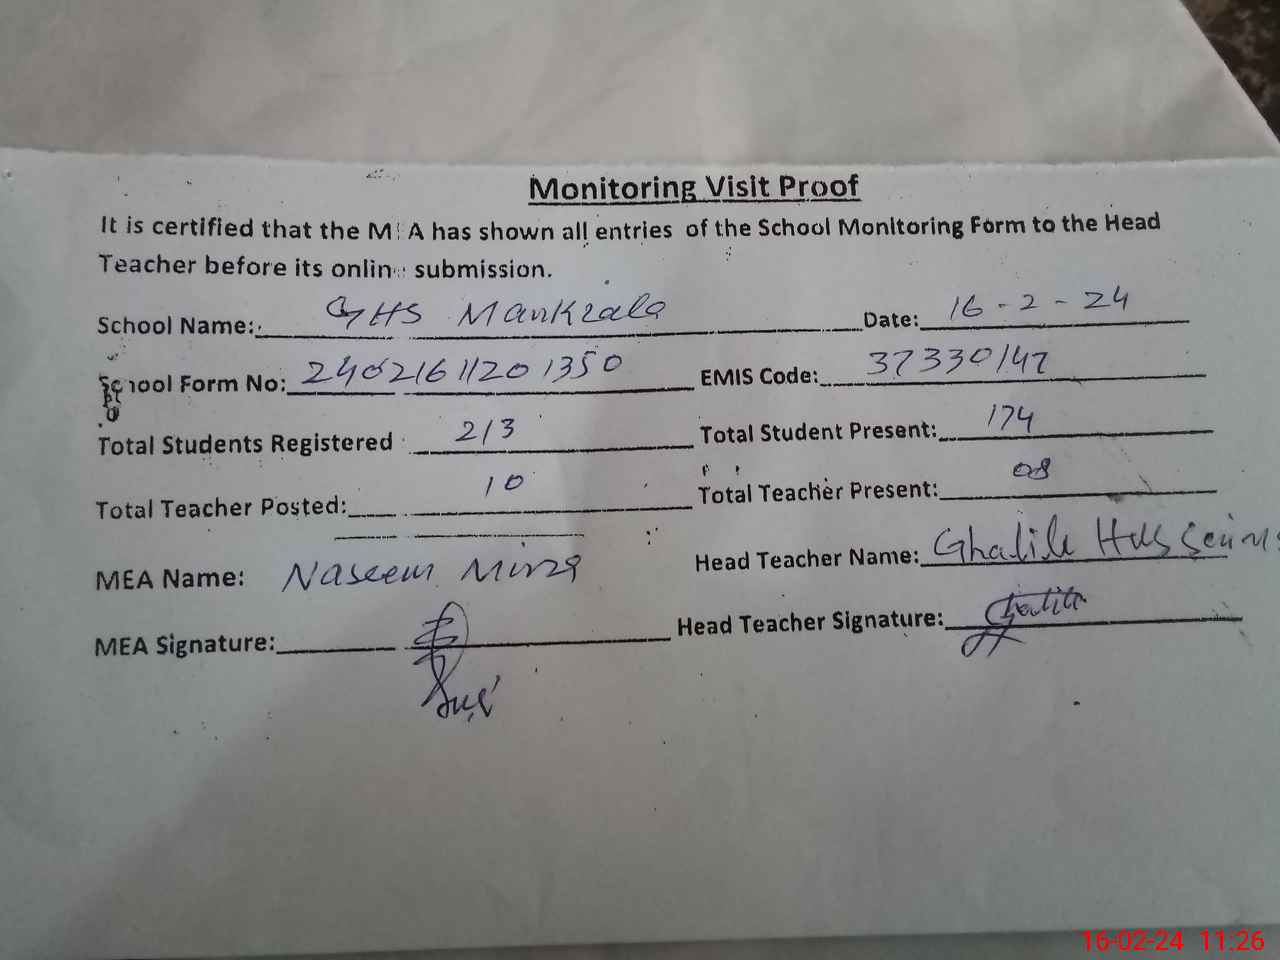 Monitoring Visit Proof
It is certified that the MEA has shown all entries of the School Monitoring Form to the Head
Teacher before its online submission.
School Name: GHS Mankiala Date: 16-2-24
School Form No: 24021611201350 EMIS Code: 37330147
Total Students Registered 213 Total Student Present: 174
Total Teacher Posted: 10 Total Teacher Present: 08
MEA Name: Naseem Mirza Head Teacher Name: Hussain
MEA Signature: Head Teacher Signature:
16-02-24 11:26